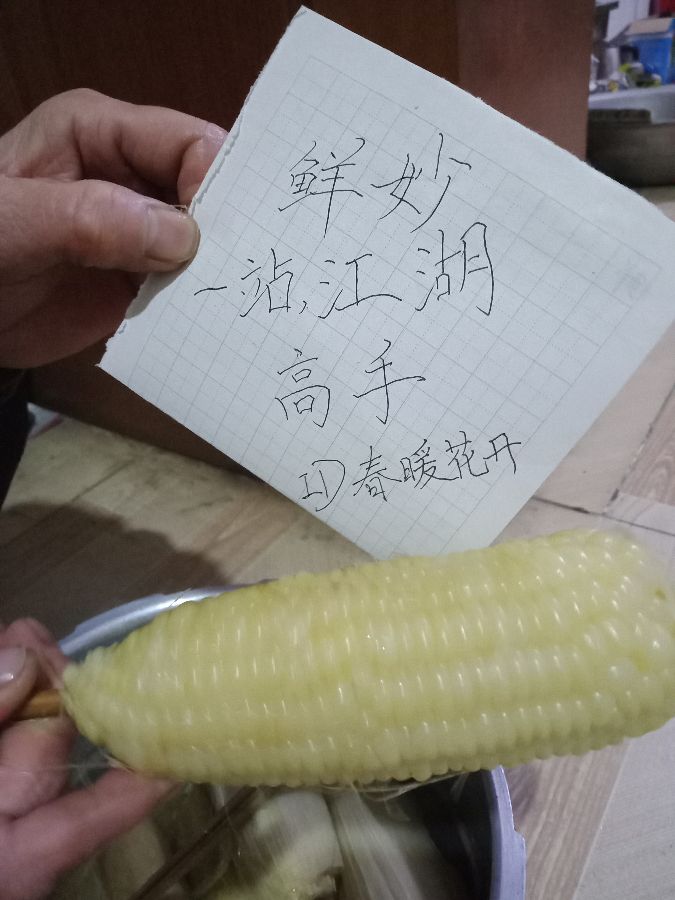 鲜妙
一站,江湖
高手
ID春暖花开